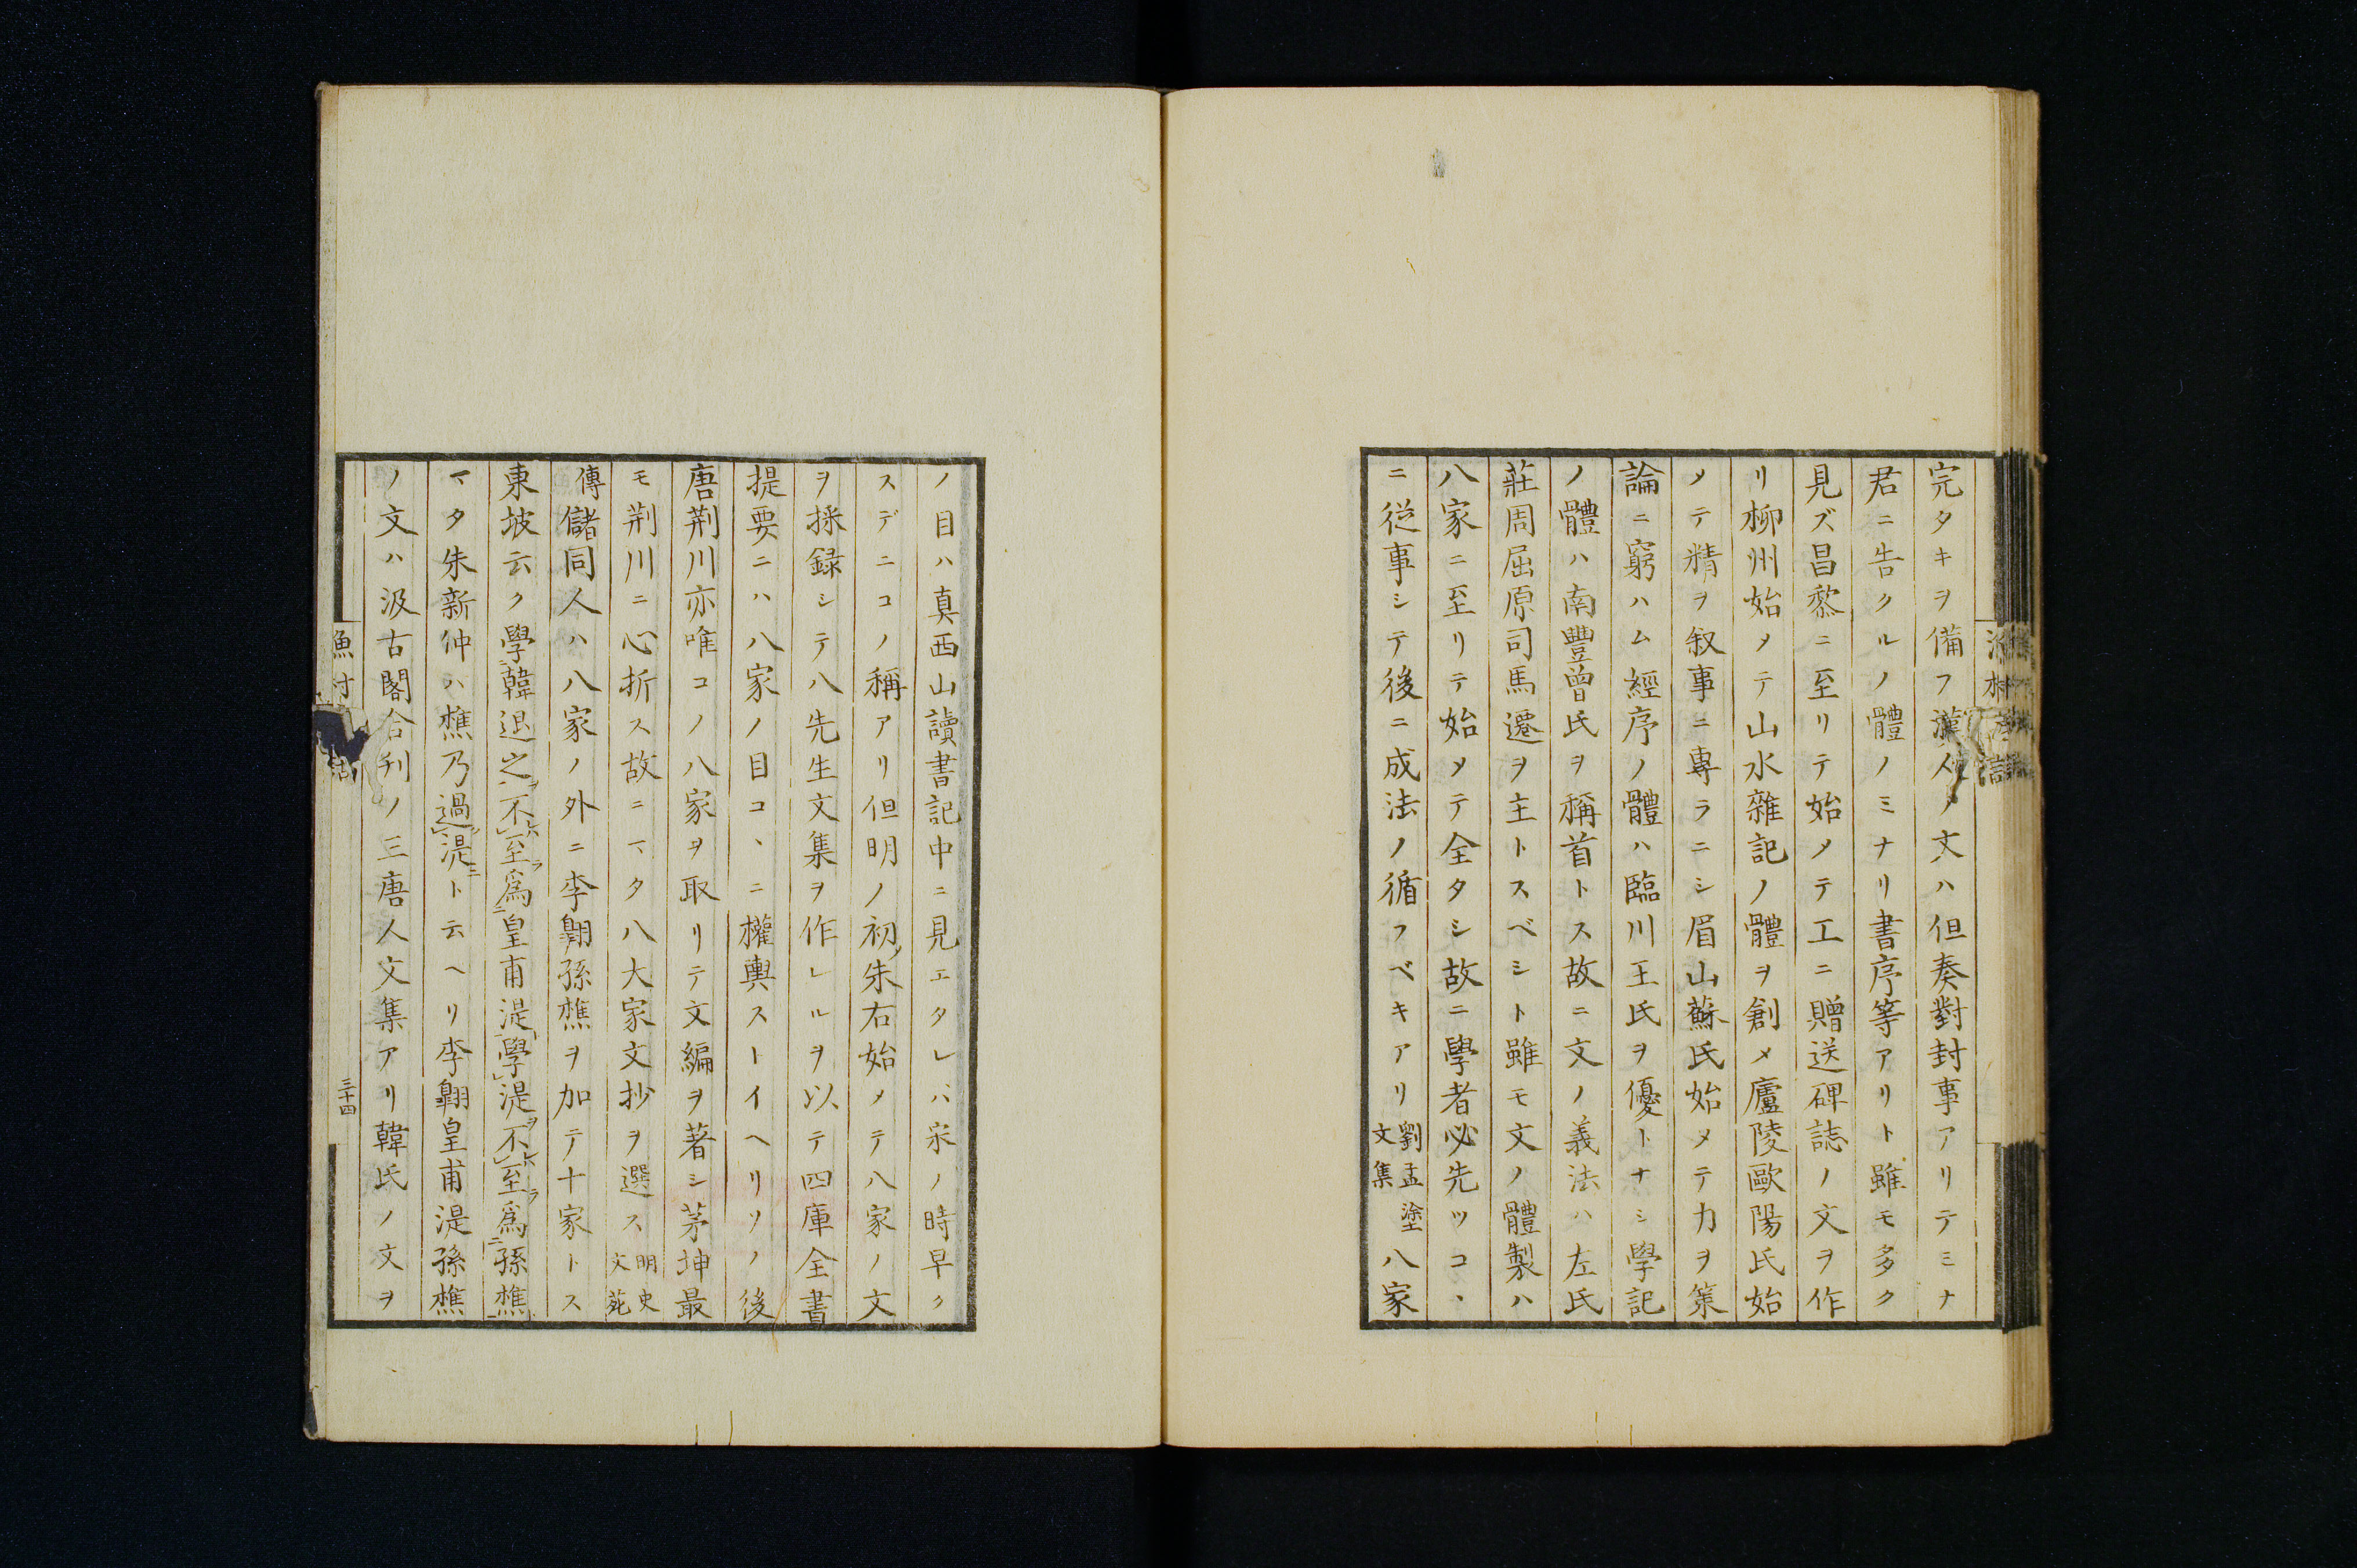 完タキヲ備フ漢人ノ文ハ但奏對封事アリテミナ
君ニ告クルノ體ノミナリ書序等アリト雖モ多ク
見ズ昌黎ニ至リテ始メテ工ニ贈送碑誌ノ文ヲ作
リ柳州始メテ山水雜記ノ體ヲ創メ廬陵歐陽氏始
メテ精ヲ叙事ニ專ラニシ眉山蘇氏始メテ力ヲ策
論ニ窮ハム經序ノ體ハ臨川王氏ヲ優トナシ學記
ノ體ハ南豐曾氏ヲ稱首トス故ニ文ノ義法ハ左氏
莊周屈原司馬遷ヲ主トスベシト雖モ文ノ體製ハ
八家ニ至リテ始メテ全タシ故ニ學者必先ツコヽ
ニ從事シテ後ニ成法ノ循フベキアリ劉孟塗文集八家
ノ目ハ真西山讀書記中ニ見エタレバ宋ノ時早ク
スデニコノ稱アリ但明ノ初ノ朱右始メテ八家ノ文
ヲ採録シテ八先生文集ヲ作レルヲ以テ四庫全書
提要ニハ八家ノ目コヽニ權輿ストイヘリソノ後
唐荆川亦唯コノ八家ヲ取リテ文編ヲ著シ茅坤最
モ荆川ニ心折ス故ニマタ八大家文抄ヲ選ス明史文苑
傳儲同人ハ八家ノ外ニ李翺孫樵ヲ加テ十家トス
東坡云ク學韓退之不至爲皇甫湜學湜不至爲孫樵
マタ朱新仲ハ樵乃過湜ニト云ヘリ李翺皇甫湜孫樵
ノ文ハ汲古閣合刊ノ三唐人文集アリ韓氏ノ文ヲ
三十四